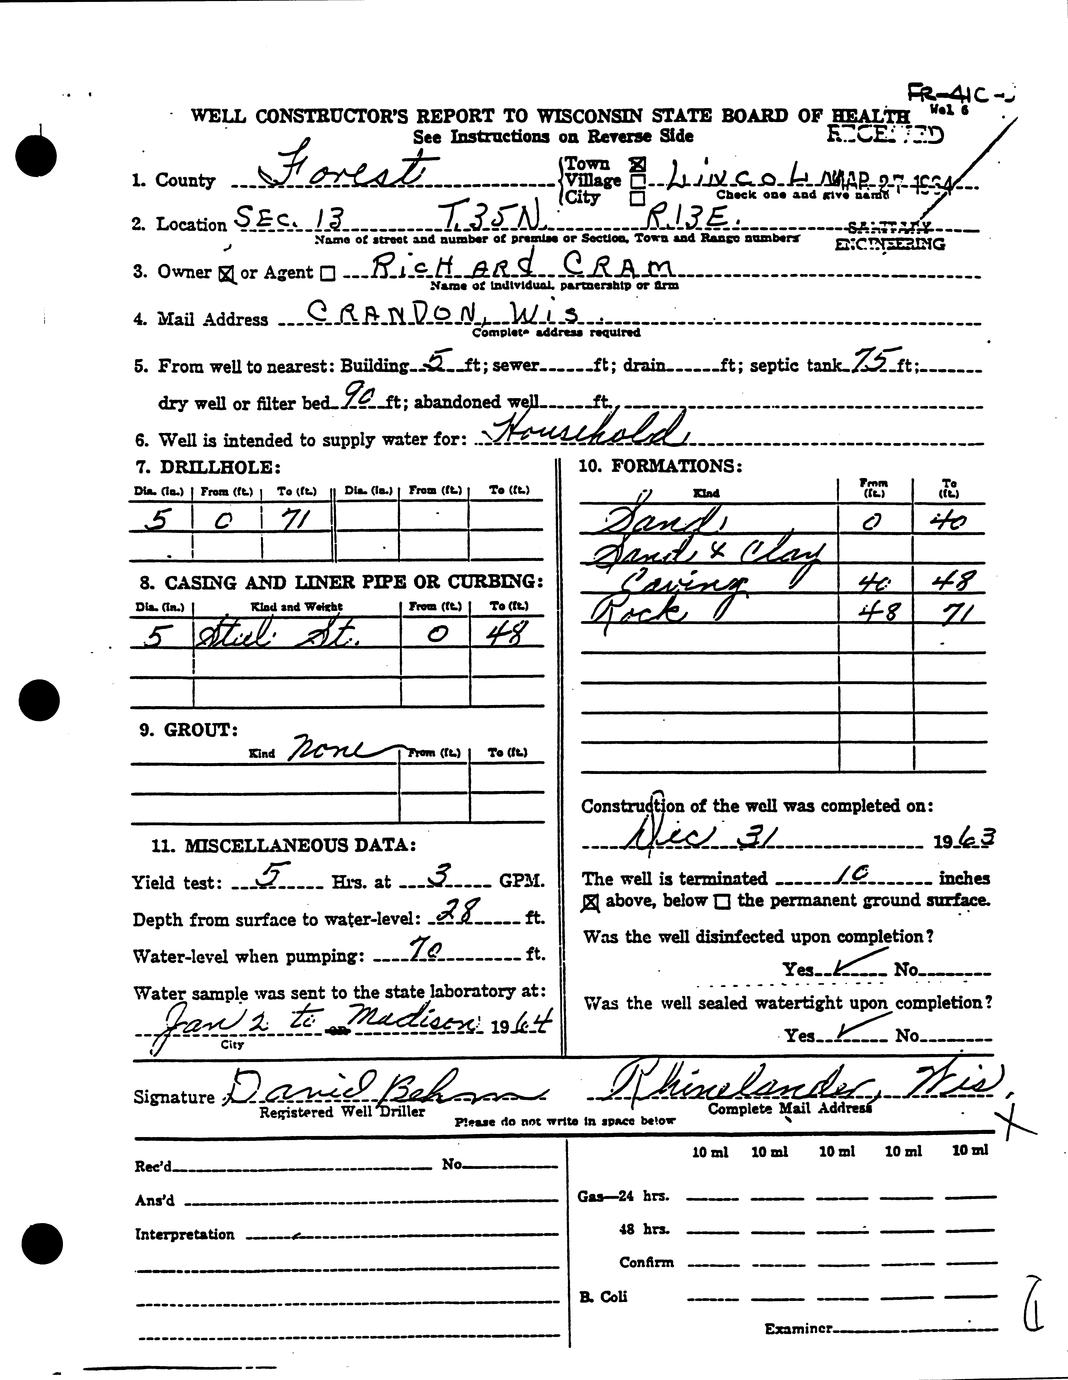 FR-41C-
WELL CONSTRUCTOR'S REPORT TO WISCONSIN STATE BOARD OF HEALTH Wel 6
See Instructions on Reverse Side RECEIVED
1. County Forest Town ☒ Village ☐ City ☐ LINCOLN MAR 27 1964
Check one and give name
2. Location SEC. 13 T.35N. R.13E. SANITARY
Name of street and number of premise or Section, Town and Range numbers ENGINEERING
3. Owner ☒ or Agent ☐ RICHARD CRAM
Name of individual, partnership or firm
4. Mail Address CRANDON, Wis.
Complete address required
5. From well to nearest: Building 5 ft; sewer ft; drain ft; septic tank 75 ft;
dry well or filter bed 90 ft; abandoned well ft.
6. Well is intended to supply water for: Household
7. DRILLHOLE:
Dia. (in.) From (ft.) To (ft.) Dia. (in.) From (ft.) To (ft.)
5 0 71
8. CASING AND LINER PIPE OR CURBING:
Dia. (in.) Kind and Weight From (ft.) To (ft.)
5 Steel St. 0 48
9. GROUT:
Kind None From (ft.) To (ft.)
11. MISCELLANEOUS DATA:
Yield test: 5 Hrs. at 3 GPM.
Depth from surface to water-level: 28 ft.
Water-level when pumping: 70 ft.
Water sample was sent to the state laboratory at:
Jan 2 to Madison 1964
City
10. FORMATIONS:
Kind From (ft.) To (ft.)
Sand 0 40
Sand & Clay
Caving 40 48
Rock 48 71
Construction of the well was completed on:
Dec 31 1963
The well is terminated 10 inches
☒ above, below ☐ the permanent ground surface.
Was the well disinfected upon completion?
Yes ✓ No
Was the well sealed watertight upon completion?
Yes ✓ No
Signature David Behm Rhinelander, Wis.
Registered Well Driller Complete Mail Address
Please do not write in space below
X
Rec'd No
Ans'd
Interpretation
10 ml 10 ml 10 ml 10 ml 10 ml
Gas—24 hrs.
48 hrs.
Confirm
B. Coli
Examiner